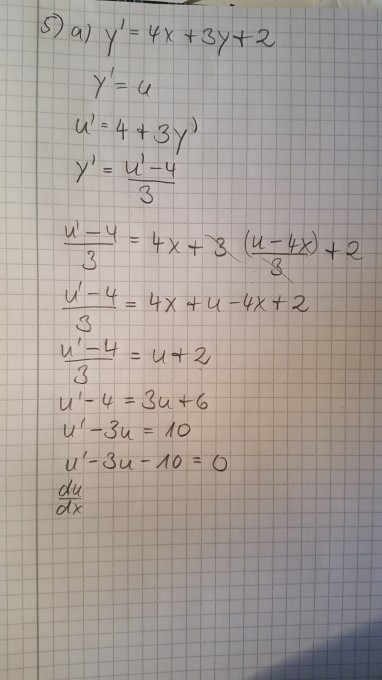 5) a) y' = 4x + 3y + 2
y' = u
u' = 4 + 3y'
y' = (u' - 4)/3
(u' - 4)/3 = 4x + 3 (u - 4x)/3 + 2
(u' - 4)/3 = 4x + u - 4x + 2
(u' - 4)/3 = u + 2
u' - 4 = 3u + 6
u' - 3u = 10
u' - 3u - 10 = 0
du/dx